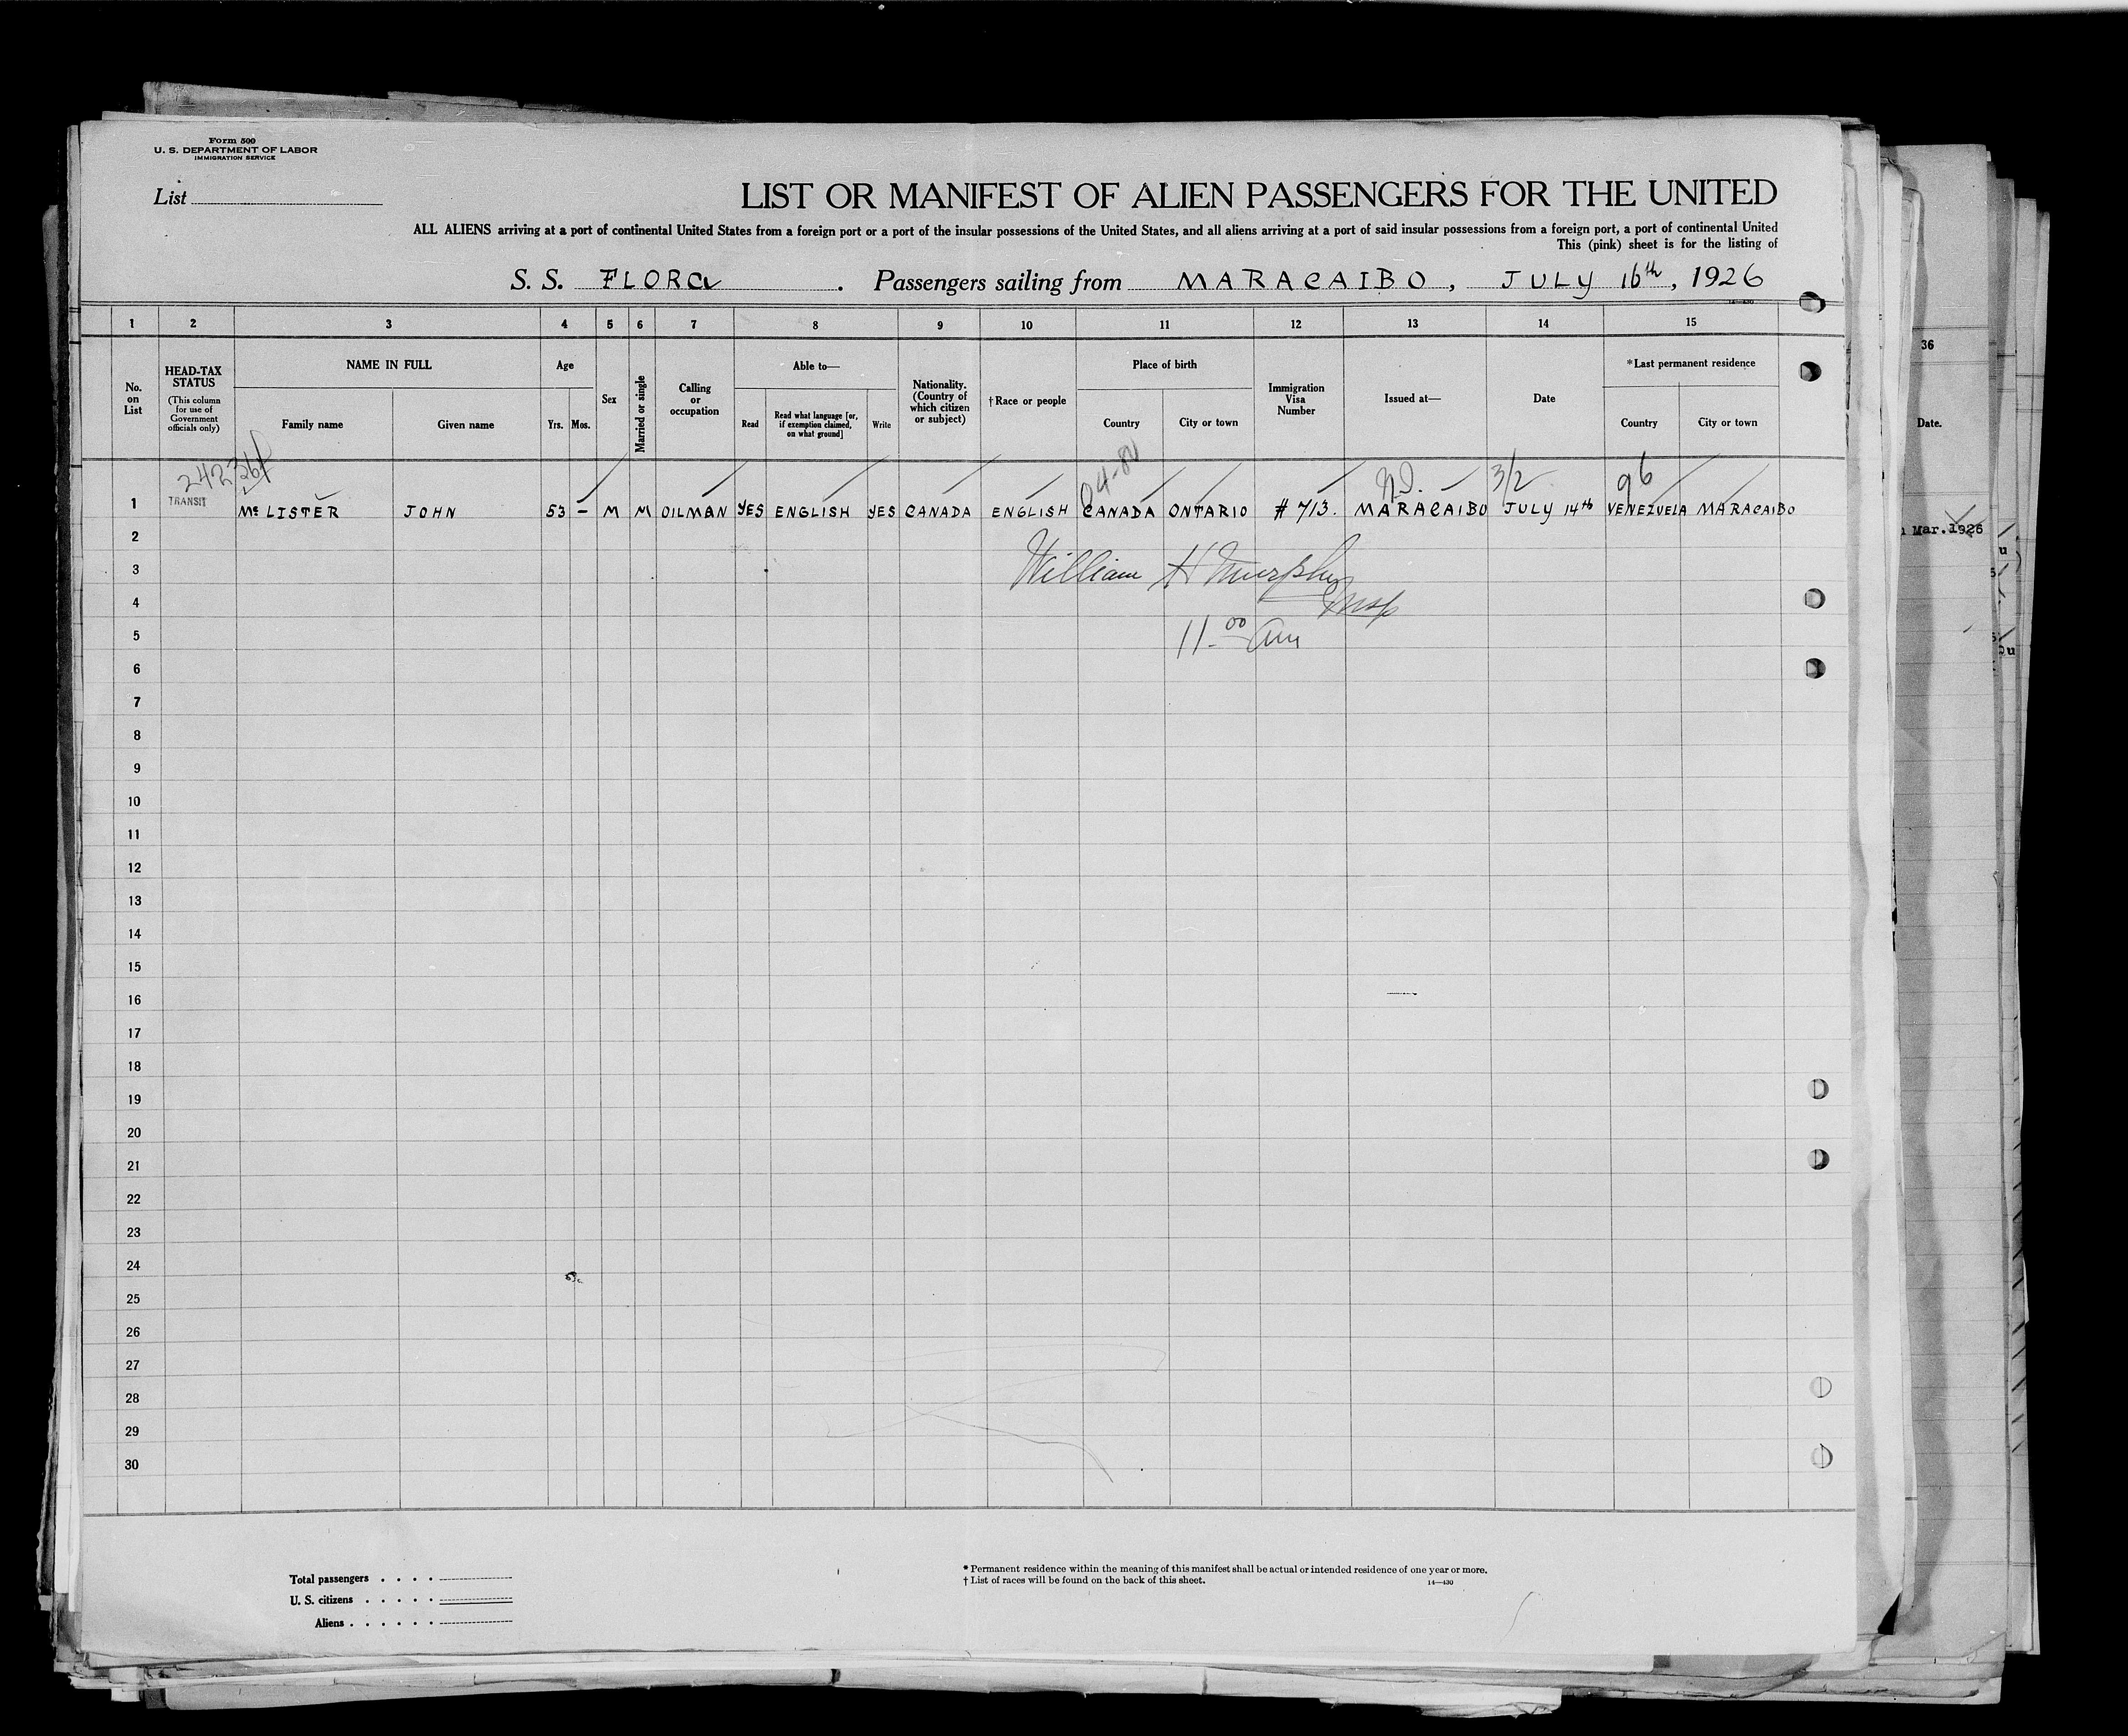 Form 500
U. S. DEPARTMENT OF LABOR
IMMIGRATION SERVICE
List
LIST OR MANIFEST OF ALIEN PASSENGERS FOR THE UNITED
ALL ALIENS arriving at a port of continental United States from a foreign port or a port of the insular possessions of the United States, and all aliens arriving at a port of said insular possessions from a foreign port, a port of continental United
This (pink) sheet is for the listing of
S. S. FLORA . Passengers sailing from MARACAIBO, JULY 16th, 1926
14—430
1 2 3 4 5 6 7 8 9 10 11 12 13 14 15
No. on List
HEAD-TAX STATUS (This column for use of Government officials only)
NAME IN FULL
Family name Given name
Age
Yrs. Mos.
Sex
Married or single
Calling or occupation
Able to—
Read Read what language [or, if exemption claimed, on what ground] Write
Nationality. (Country of which citizen or subject)
†Race or people
Place of birth
Country City or town
Immigration Visa Number
Issued at—
Date
*Last permanent residence
Country City or town
36
Date.
242 04-80 3/2 96
1 TRANSIT Mc LISTER JOHN 53 – M M OILMAN YES ENGLISH YES CANADA ENGLISH CANADA ONTARIO # 713. MARACAIBO JULY 14th VENEZUELA MARACAIBO
Mar. 1926
2
3 William H Murphy
4 Insp
5 11-00 am
6
7
8
9
10
11
12
13
14
15
16
17
18
19
20
21
22
23
24
25
26
27
28
29
30
Total passengers . . . .
U. S. citizens . . . . .
Aliens . . . . . .
* Permanent residence within the meaning of this manifest shall be actual or intended residence of one year or more.
† List of races will be found on the back of this sheet.
14—430